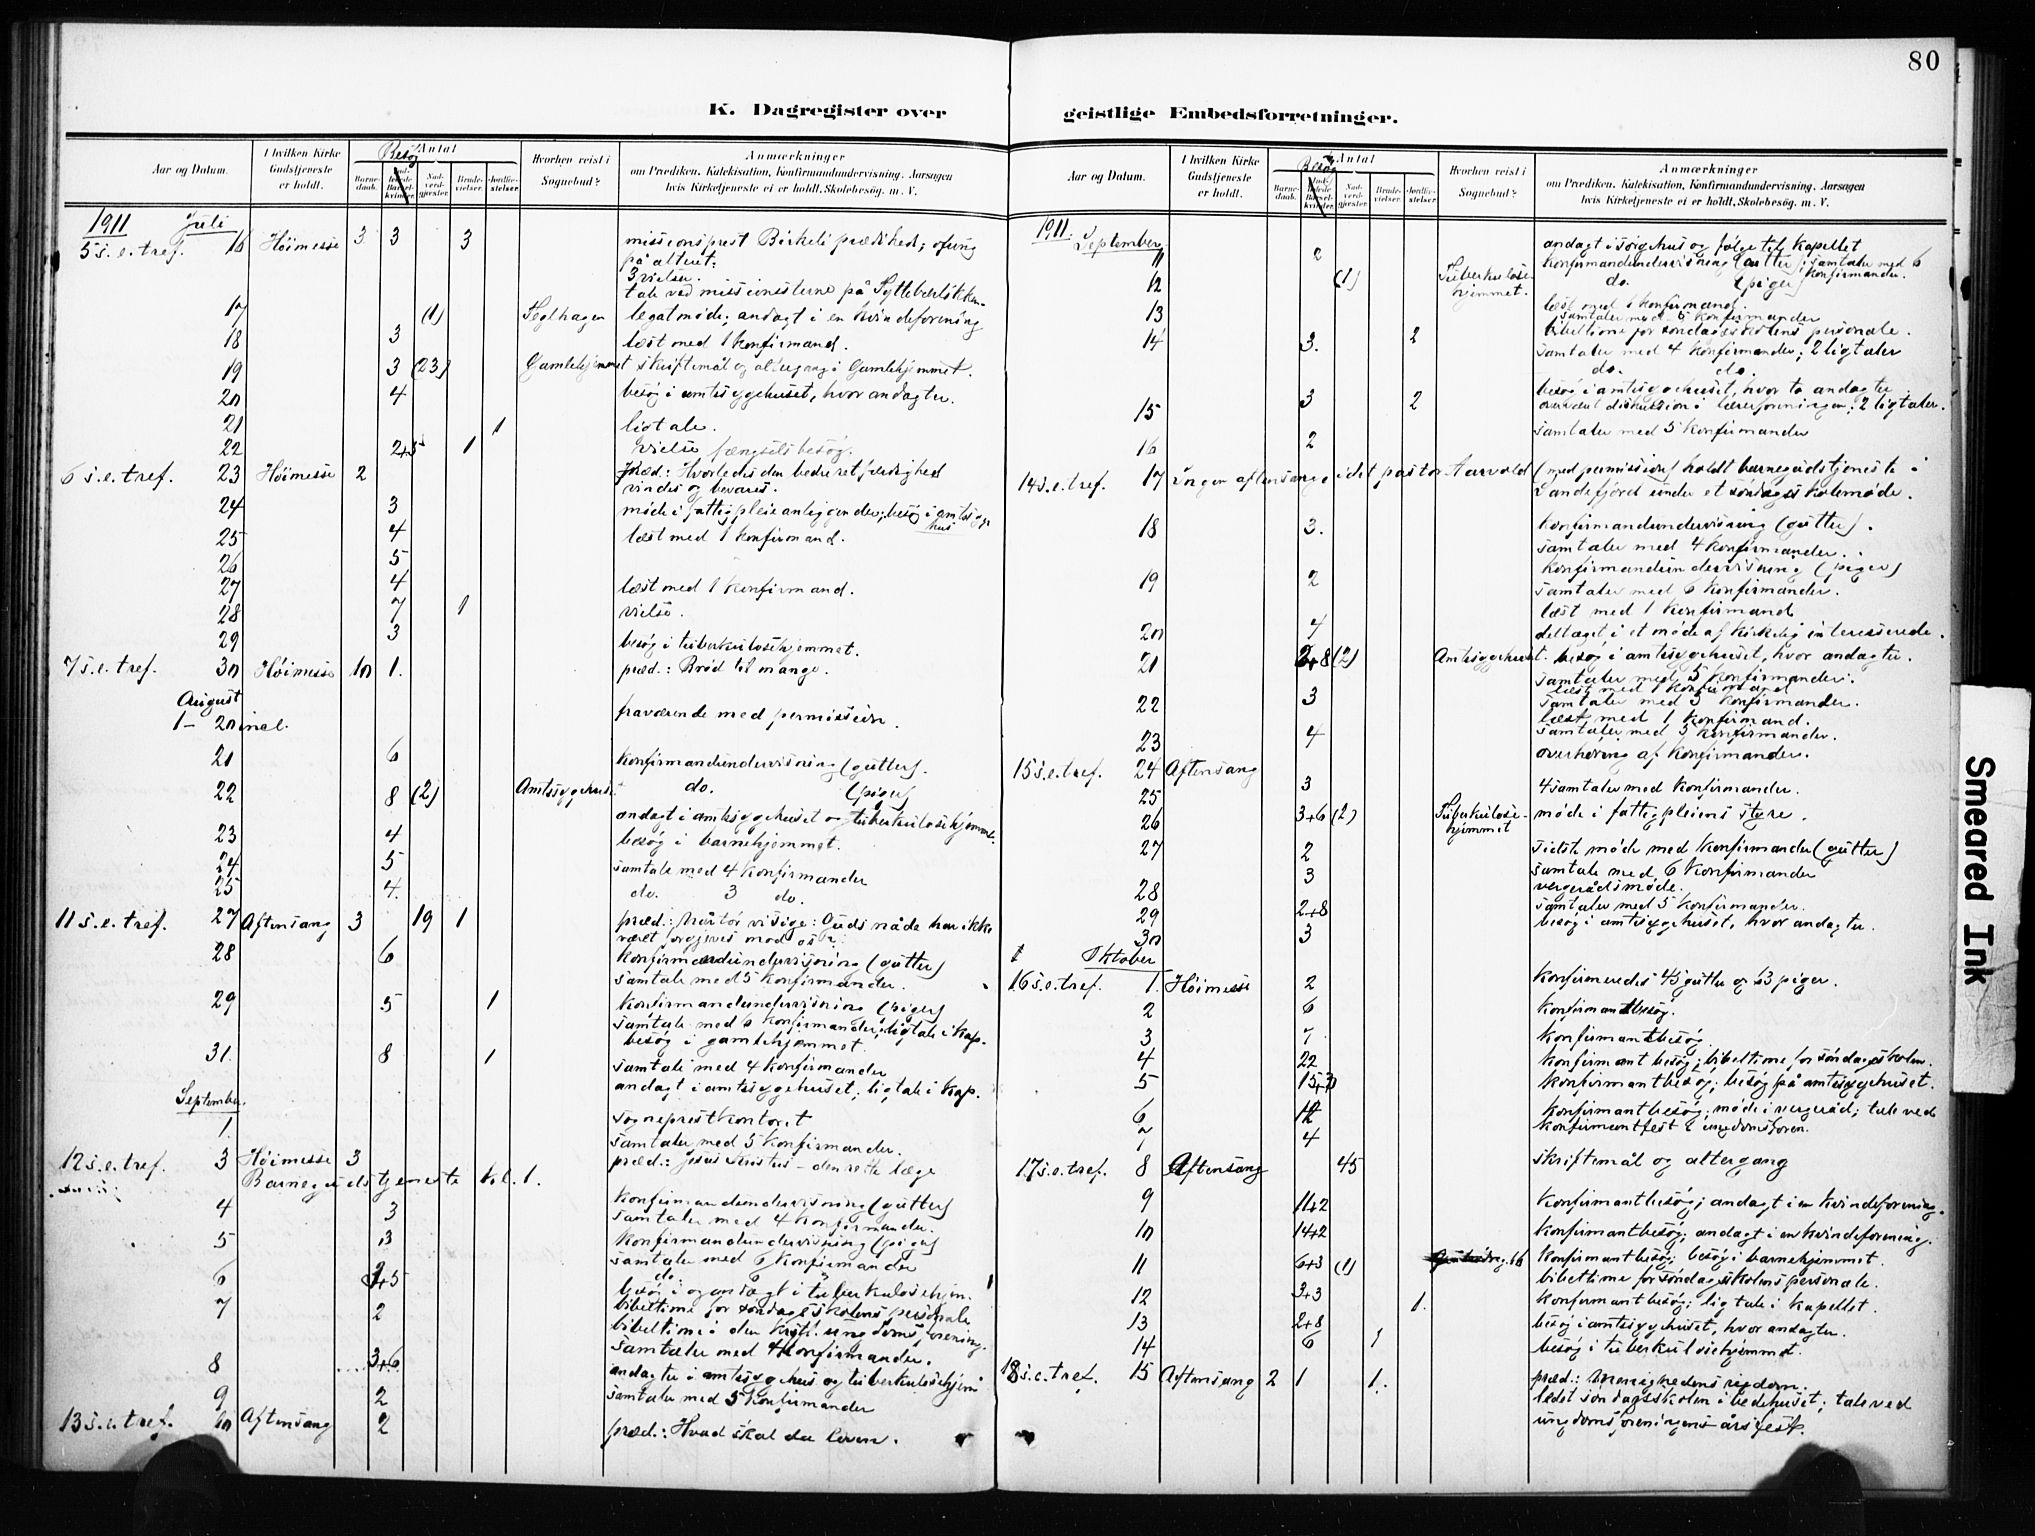 80
K. Dagregister over geistlige Embedsforretninger.
Aar og Datum.
I hvilken Kirke Gudstjeneste er holdt.
Besøg
Antal
Barne-daab.
Ind-ledede Barsel-kvinder.
Nad-verd-gjester.
Brude-vielser.
Jordfæ-stelser.
Hvorhen reist i Sognebud?
Anmærkninger
om Prædiken, Katekisation, Konfirmandundervisning, Aarsagen
hvis Kirketjeneste ei er holdt, Skolebesøg. m. V.
1911 Juli
5 s.e. tref. 16 Høimesse 3 3 3 missionsprest Birkeli prædiked; ofring
på alteret.
3 vielser.
tale ved
17 (1) legatmøde; andagt i en kvindeforening
18 3 læst med 1 konfirmand.
19 3 (23) Gamlehjemmet skriftemål og altergang i Gamlehjemmet.
20 4 besøg i amtssygehuset, hvor andagter.
21 1 ligtale.
22 2+5 1 vielse fængselsbesøg.
6 s.e. tref. 23 Høimesse 2 præd: Hvorledes den bedre retfærdighed
vindes og bevares.
24 3 møde i fattigpleieanliggender; besøg i amtssyge
hus
25 4 læst med 1 konfirmand.
26 5
27 4 læst med 1 konfirmand.
28 7 1 vielse.
29 3 besøg i tuberkulosehjemmet.
7 s.e. tref. 30 Høimesse 10 1. præd.: Brød til mange.
August
1 - 20 incl. fraværende med permission.
21 6 konfirmandundervisning (gutter).
22 8 (2) Amtssygehuset do. (piger)
andagt i amtssygehuset og tuberkulosehjemmet.
23 4 besøg i barnehjemmet.
24 5 samtale med 4 konfirmander
25 4. do. 3 do.
11 s.e. tref. 27 Aftensang 3 19 1 præd.: når tør vi sige: Guds nåde har ikke
været forgjeves mod os?
28 6 konfirmandundervisning (gutter)
samtale med 5 konfirmander.
29 5 1 konfirmandundervisning (piger)
samtale med 6 konfirmander; ligtale i kap.
besøg i gamlehjemmet
31. 8 1 samtale med 4 konfirmander
andagt i amtssygehuset; ligtale i kap.
September.
1. sogneprestkontoret
samtaler med 5 konfirmander.
12 s.e. tref. 3 Høimesse 3 præd.: Jesus Kristus - den rette læge
Barnegudstjeneste kl. 1.
4 3 konfirmandundervisning (gutter)
samtaler med 4 konfirmander.
5 3 konfirmandundervisning (piger)
samtale med 6 konfirmander
6 do. 6
besøg i og andagt i tuberkulosehjem.
7 2 bibeltime for søndagsskolens personale
bibeltime i den kristl. ungdomsforening.
samtaler med 4 konfirmander.
8 3+6 andagter i amtssygehus og tuberkulosehjem
9 2 samtaler med 5 konfirmander
13 s.e. tref. 10 Aftensang 2 præd.: Hvad skal du leven.
Aar og Datum.
I hvilken Kirke Gudstjeneste er holdt.
Besøg
Antal
Barne-daab.
Ind-ledede Barsel-kvinder.
Nad-verd-gjester.
Brude-vielser.
Jordfæ-stelser.
Hvorhen reist i Sognebud?
Anmærkninger
om Prædiken, Katekisation, Konfirmandundervisning, Aarsagen
hvis Kirketjeneste ei er holdt, Skolebesøg. m. V.
1911. September.
andagt i sørgehus og følge til kapellet
11 2 konfirmandundervisning (gutter) samtaler med 6
konfirmander.
12 (1) Tuberkulose-hjemmet. do. (piger)
13 læst med 1 konfirmand.
samtaler med 5 konfirmander
bibeltime for søndagsskolens personale.
14 3. 2 samtaler med 4 konfirmander; 2 ligtaler
do. do.
besøg i amtssygehuset, hvor to andagter
15 3 2 diskussion i lærerforeningen; 2 ligtaler.
16 2 samtaler med 5 konfirmander
14 s.e. tref. 17 Ingen aftensang, idet pastor Aarvold (med permission) holdt barnegudstjeneste i
Sandefjord under et søndagsskolemøde.
18 3. konfirmandundervisning (gutter).
samtaler med 4 konfirmander.
konfirmandundervisning (piger)
19 2 samtaler med 6 konfirmander.
læst med 1 konfirmand
20 4 deltaget i et møde af kirkelig interesserede.
21 +8 (2) Amtssygehuset. besøg i amtssygehuset, hvor andagter.
samtaler med 5 konfirmander.
læst med 1 konfirmand
22 3 samtaler med 5 konfirmander.
læst med 1 konfirmand.
23 4 samtaler med 5 konfirmander.
overhøring af konfirmander.
15 s.e. tref. 24 Aftensang
25 3 4 samtaler med konfirmander.
26 3+6 (2) Tuberkulose-hjemmet møde i fattigpleiens styre.
27 2 sidste møde med konfirmander (gutter)
3 samtale med 6 konfirmander
28 vergerådsmøde.
29 2+8 samtaler med 5 konfirmander.
30 3 besøg i amtssygehuset, hvor andagter.
Oktober
16 s.e. tref. 1. Høimesse 2 konfirmeredes 45 gutter og 53 piger.
2 6 konfirmantbesøg.
3 7 konfirmantbesøg
4 22 konfirmantbesøg; bibeltime for søndagsskolen.
5 15+7 konfirmantbesøg; besøg på amtssygehuset.
6 konfirmantbesøg; møde i vergeråd; tale ved
7 4 konfirmantfest i ungdomsforen.
17 s.e. tref. 8 Aftensang 45 skriftemål og altergang
9 11+2 konfirmantbesøg; andagt i en kvindeforening.
10 14+2 konfirmantbesøg; andagt i en kvindeforening.
11 6+3 (1) konfirmantbesøg; besøg i barnehjemmet.
bibeltime for søndagsskolens personale.
12 3+3 1. konfirmantbesøg; ligtale i kapellet.
13 2+8 besøg i amtssygehuset, hvor andagter.
14 6 1 besøg i tuberkulosehjemmet.
18 s.e. tref. 15 Aftensang 2 1 1. præd.: Menighedens rigdom.
ledet søndagsskolen i bedehuset; tale ved
ungdomsforeningens årsfest.
Smeared Ink